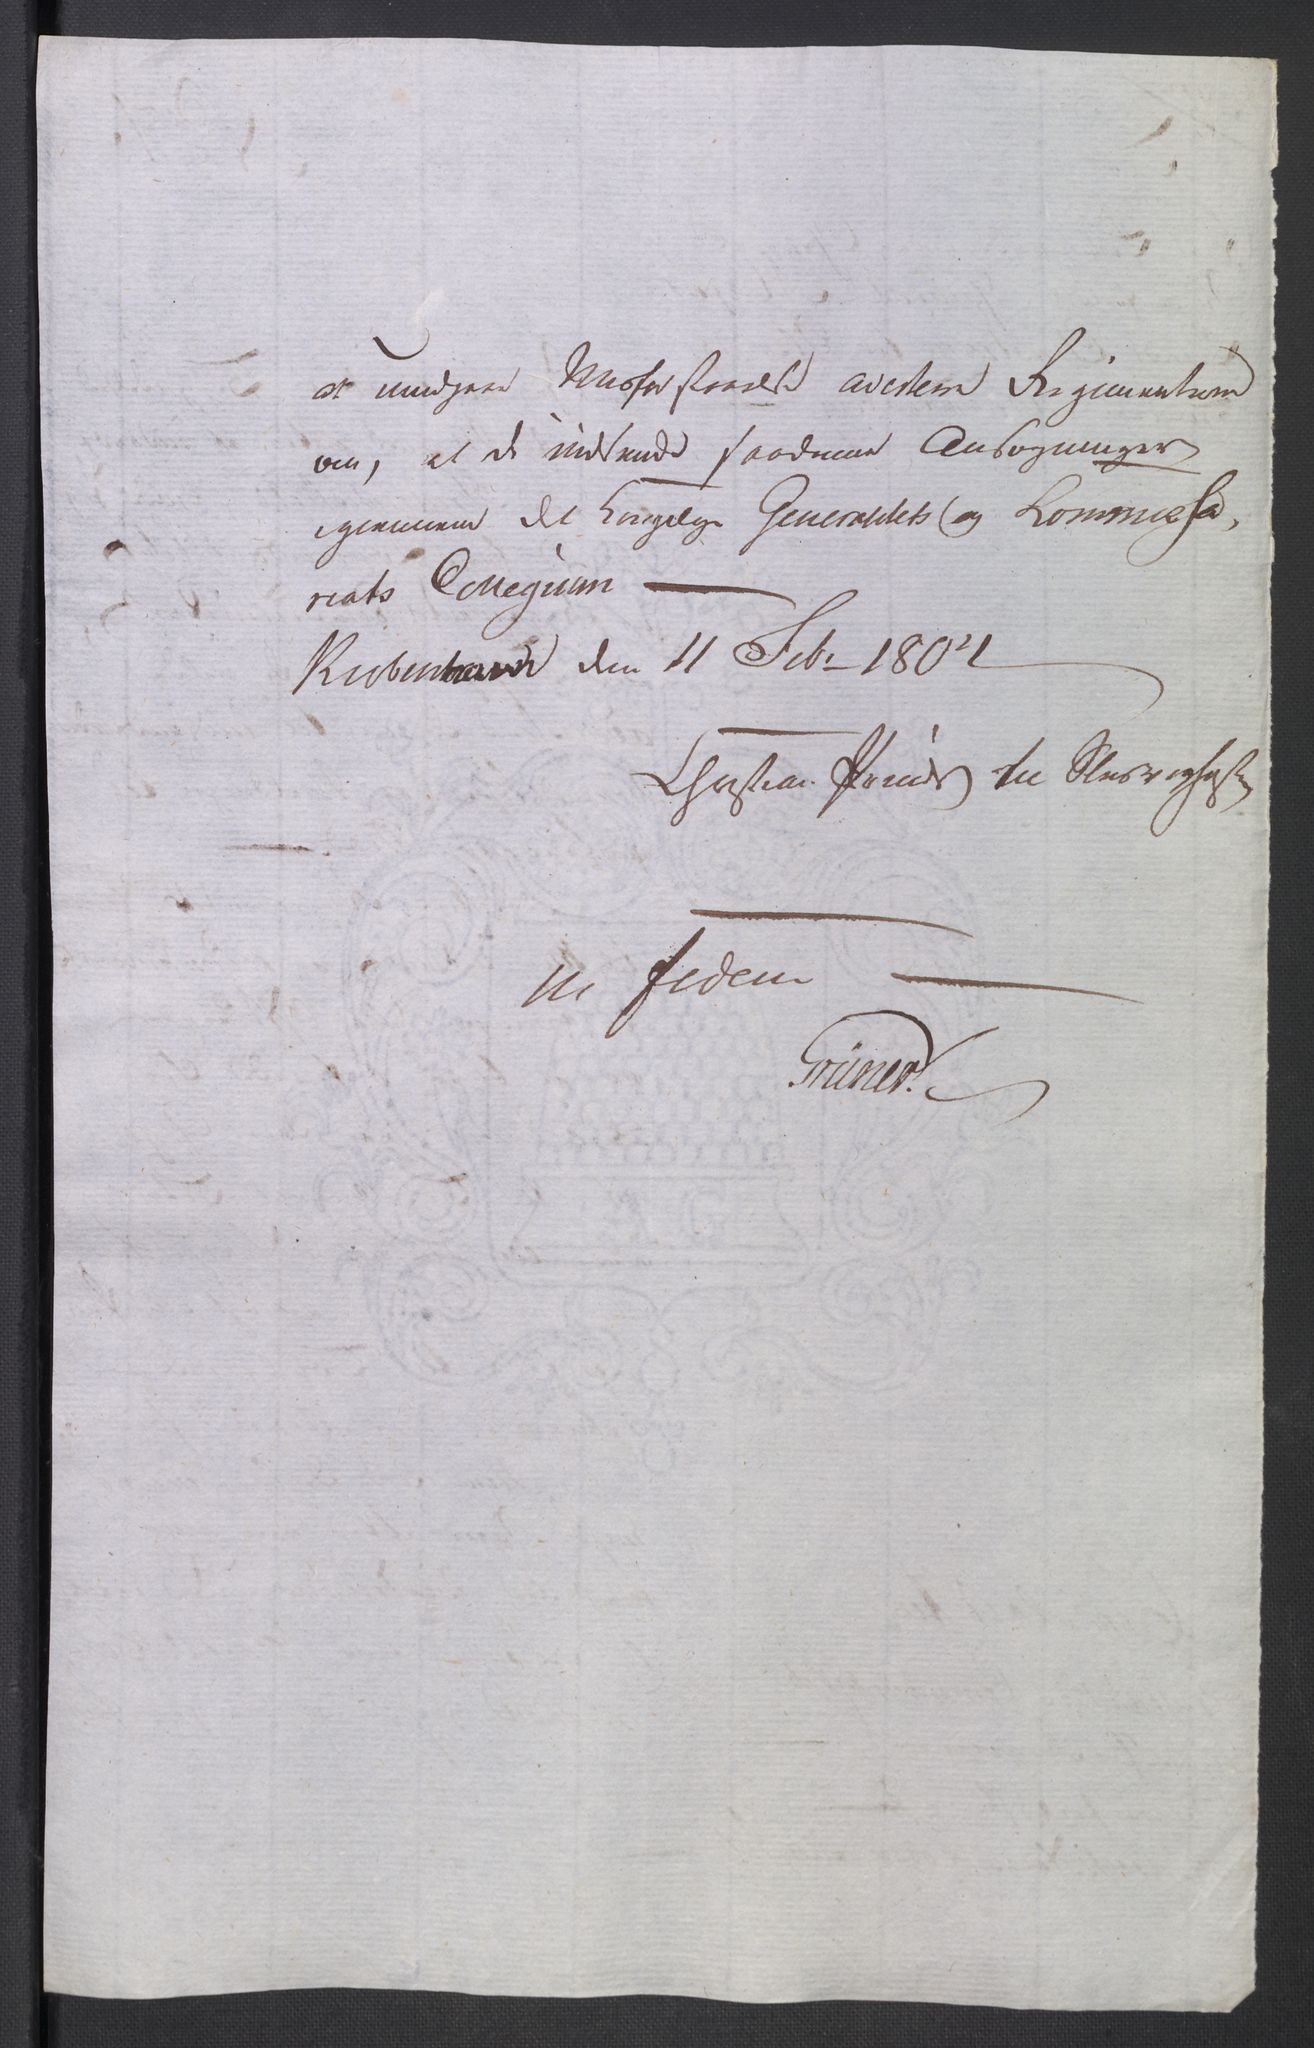 at undgaae Misforstaaelse avertere Regimenterne
om, at de indsende saadanne Ansøgninger
igiennem det kongelige Generalitets og Kommissa,
riats Collegium
Kiöbenhavn den 11 Feb. 1804
Christian Prinds til Slesvigholst
in fidem
Grüner.